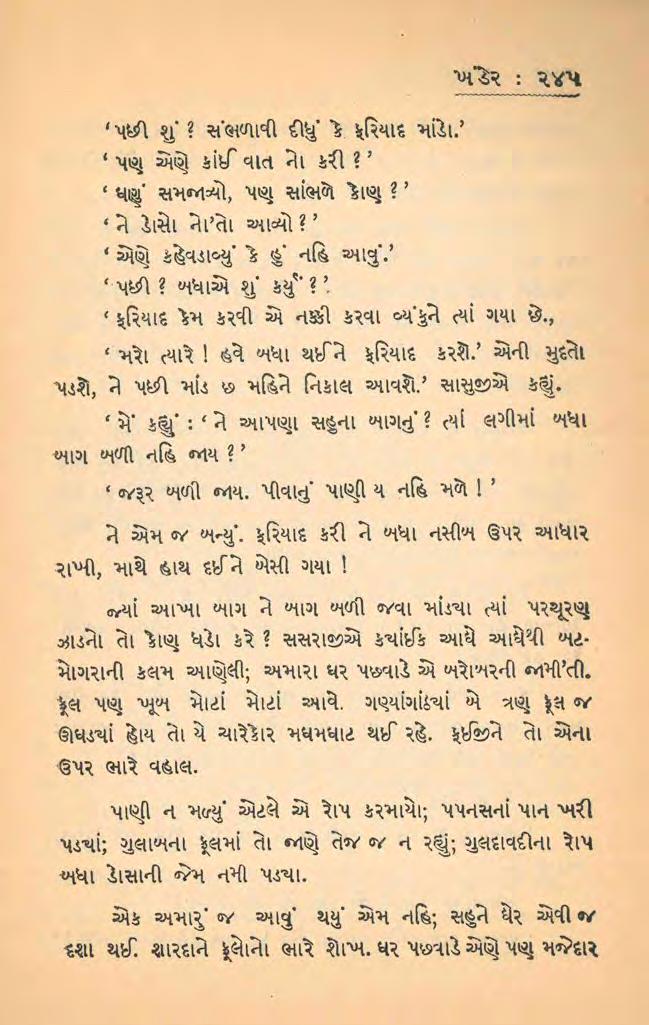 ખંડેર : ૨૪૫
‘પછી શું ? સંભળાવી દીધું કે ફરિયાદ માંડો.’
‘ પણ એણે કાંઈ વાત નો કરી ? ’
‘ ઘણું સમજાવ્યો, પણ સાંભળે કોણ ? ’
‘ ને ડોસો નો’તો આવ્યો ? ’
‘ એણે કહેવડાવ્યું કે હું નહિ આવું.’
‘ પછી ? બધાએ શું કર્યું ? ’.
‘ ફરિયાદ કેમ કરવી એ નક્કી કરવા વ્યંકુને ત્યાં ગયા છે.,
‘ મરો ત્યારે ! હવે બધા થઈને ફરિયાદ કરશે.’ એની મુદતો
પડશે, ને પછી માંડ છ મહિને નિકાલ આવશે.’ સાસુજીએ કહ્યું.
‘ મેં કહ્યું : ‘ ને આપણા સહુના બાગનું ? ત્યાં લગીમાં બધા
બાગ બળી નહિ જાય ? ’
‘ જરૂર બળી જાય. પીવાનું પાણી ય નહિ મળે ! ’
ને એમ જ બન્યું. ફરિયાદ કરી ને બધા નસીબ ઉપર આધાર
રાખી, માથે હાથ દઈને બેસી ગયા !
જ્યાં આખા બાગ ને બાગ બળી જવા માંડ્યા ત્યાં પરચૂરણ
ઝાડનો તો કોણ ધડો કરે ? સસરાજીએ ક્યાંઈક આઘે આઘેથી બટ-
મોગરાની કલમ આણેલી; અમારા ઘર પછવાડે એ બરોબરની જામી’તી.
ફૂલ પણ ખૂબ મોટાં મોટાં આવે. ગણ્યાંગાંઠ્યાં બે ત્રણ ફૂલ જ
ઊઘડ્યાં હોય તો યે ચારેકોર મઘમઘાટ થઈ રહે. ફઈજીને તો એના
ઉપર ભારે વહાલ.
પાણી ન મળ્યું એટલે એ રોપ કરમાયો; પપનસનાં પાન ખરી
પડ્યાં; ગુલાબના ફૂલમાં તો જાણે તેજ જ ન રહ્યું; ગુલદાવદીના રોપ
બધા ડોસાની જેમ નમી પડ્યા.
એક અમારું જ આવું થયું એમ નહિ; સહુને ઘેર એવી જ
દશા થઈ. શારદાને ફૂલોનો ભારે શોખ. ઘર પછવાડે એણે પણ મજેદાર